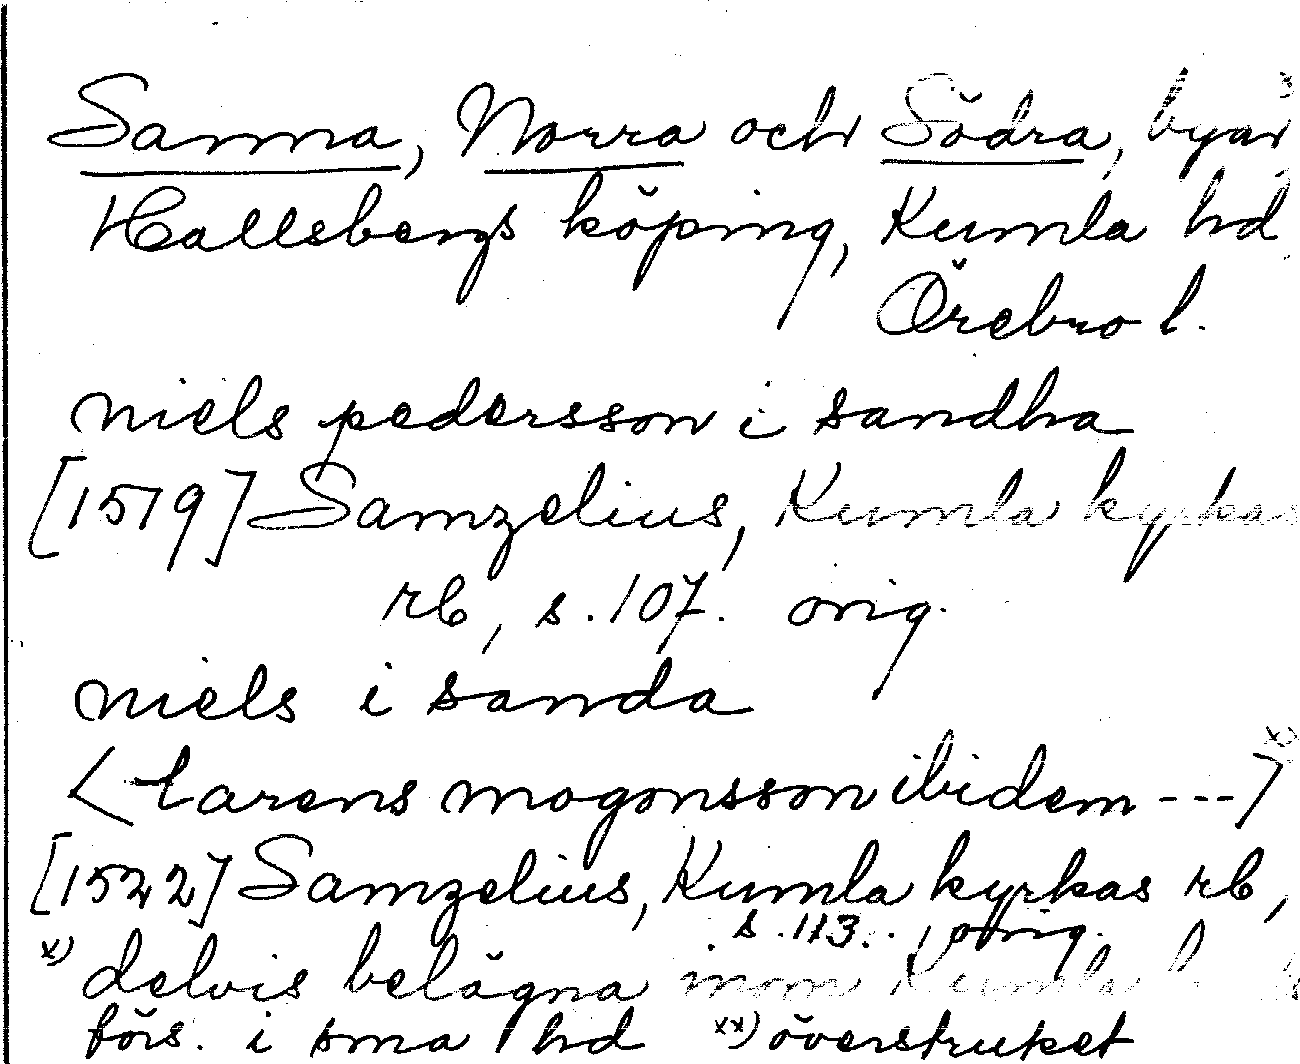 Sanna, Norra och Södra, byar x)
Hallsbergs köping, Kumla hd
Örebro l.
niels pedersson i sandha
[1519] Samzelius, Kumla kyrkas
rb, s. 107. orig.
niels i sanda
<larens mogonsson ibidem ---> xx)
[1522] Samzelius, Kumla kyrkas rb,
s. 113., orig.
x) delvis belägna inom Kumla
förs. i sma hd xx) överstruket